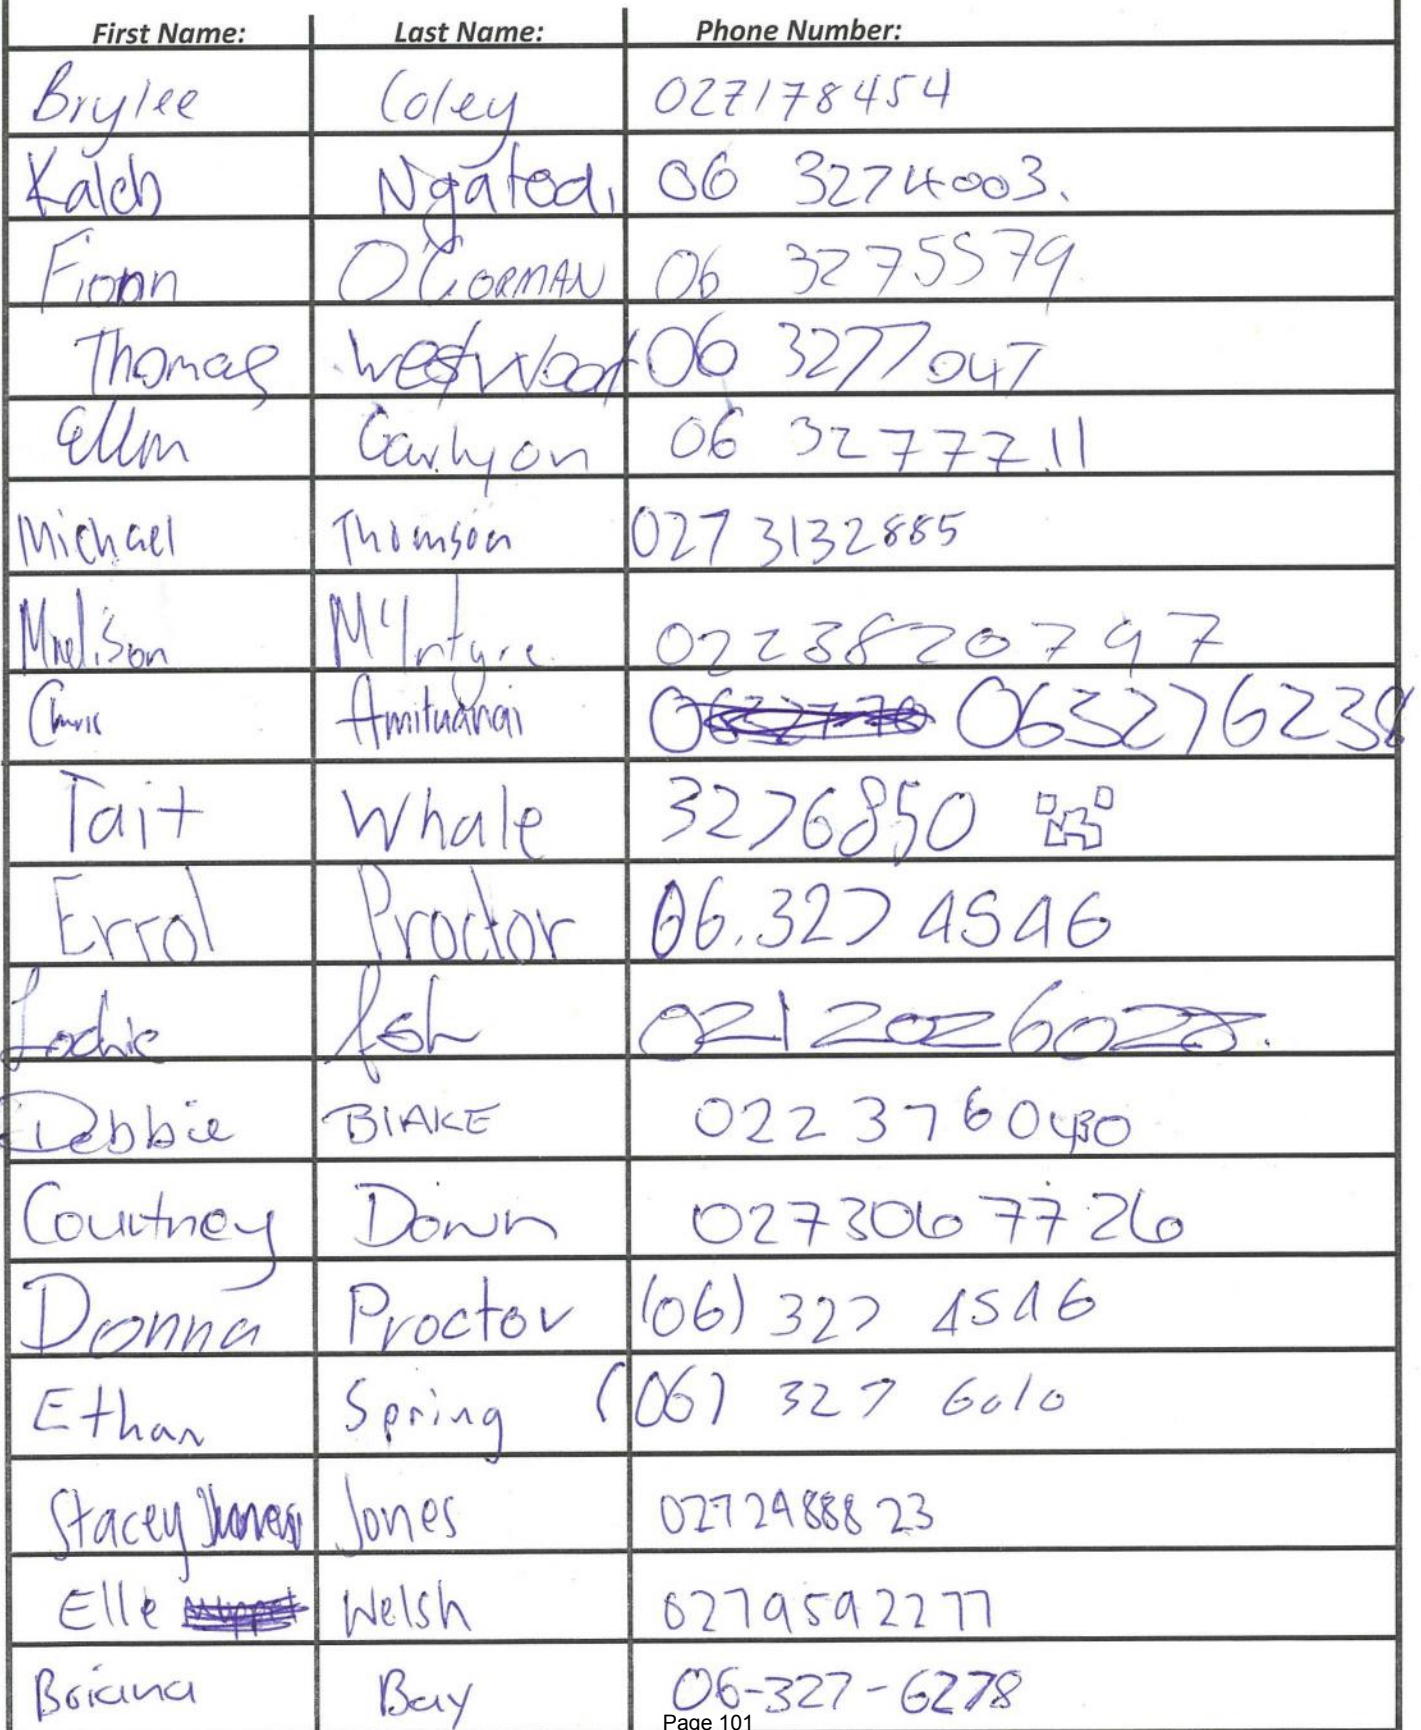 First Name: Last Name: Phone Number:
Brylee Coley 027178454
Kaleb 06 3274003.
Fionn O'GORMAN 06 3275579
Thomas Westwood 06 3277047
Carlyon 06 3277711
Michael Thomson 027 3132885
McIntyre 0223820797
Chris Amituanai 063276238
Tait Whale 3276850
Errol Proctor 06.327 4546
Lochie Ash 021 2026028.
Debbie BlAKE 022 3760430
Courtney Down 0273067726
Donna Proctor (06) 327 4546
Ethan Spring (06) 327 6010
Stacey Jones 0272488823
Elle Welsh 0279592277
Briana Bay 06-327-6278
Page 101